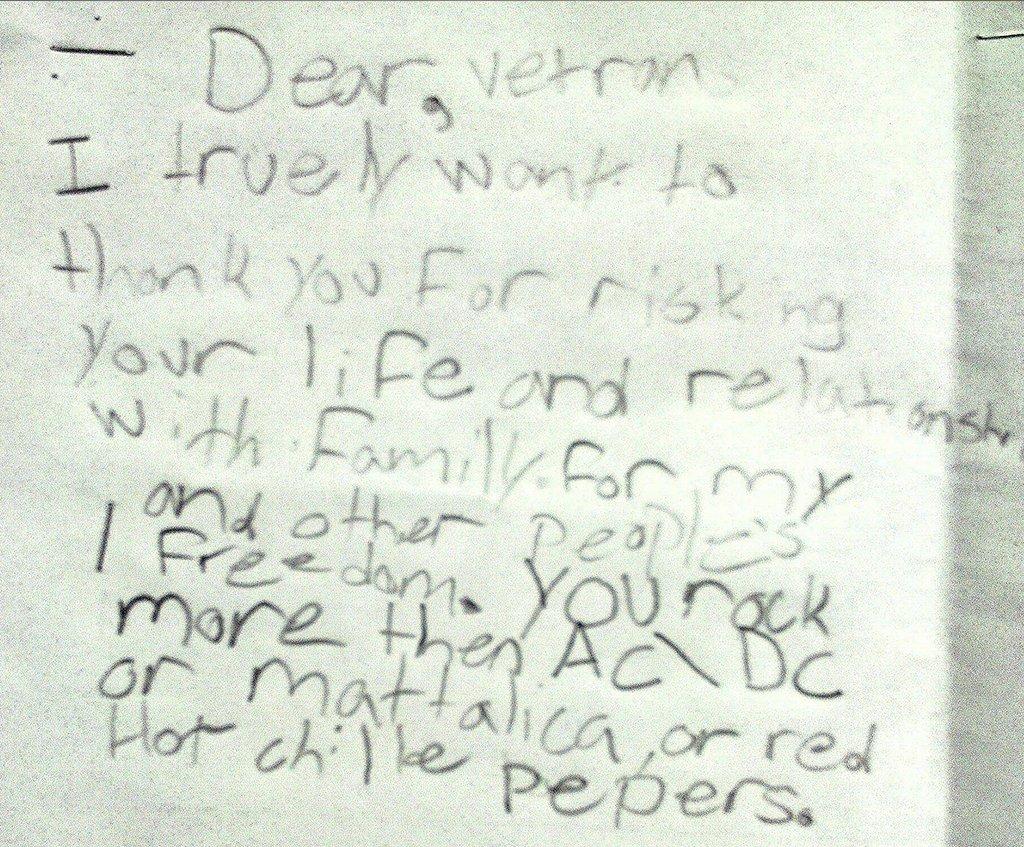 Dear, vetran
I truely want to
thank you For risking
your life and relationsh
with Family. For my
and other people's
Freedom. You rock
more then AC\DC
or mattalica, or red
Hot chilke pepers.